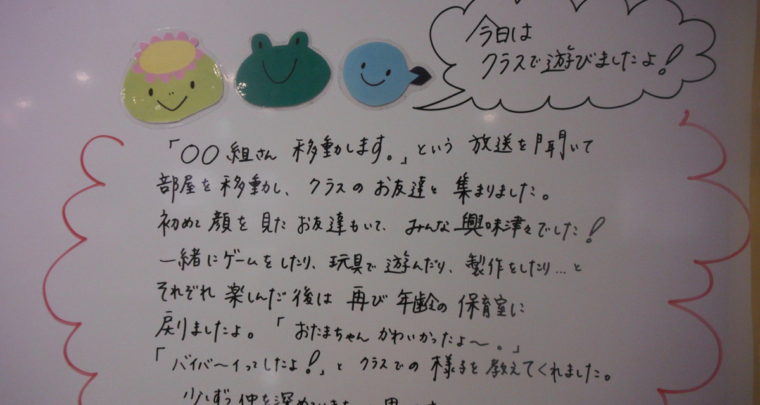 今日は
クラスで遊びましたよ!
「〇〇組さん 移動します。」という 放送を聞いて
部屋を移動し、クラスの お友達と 集まりました。
初めて顔を見たお友達もいて、みんな興味津々でした!
一緒にゲームをしたり、玩具で遊んだり、製作をしたり…と
それぞれ楽しんだ後は 再び年齢の保育室に
戻りましたよ。「おたまちゃん かわいかったよ〜。」
「バイバーイってしたよ!」と クラスでの様子を教えてくれました。
少しずつ仲を深め